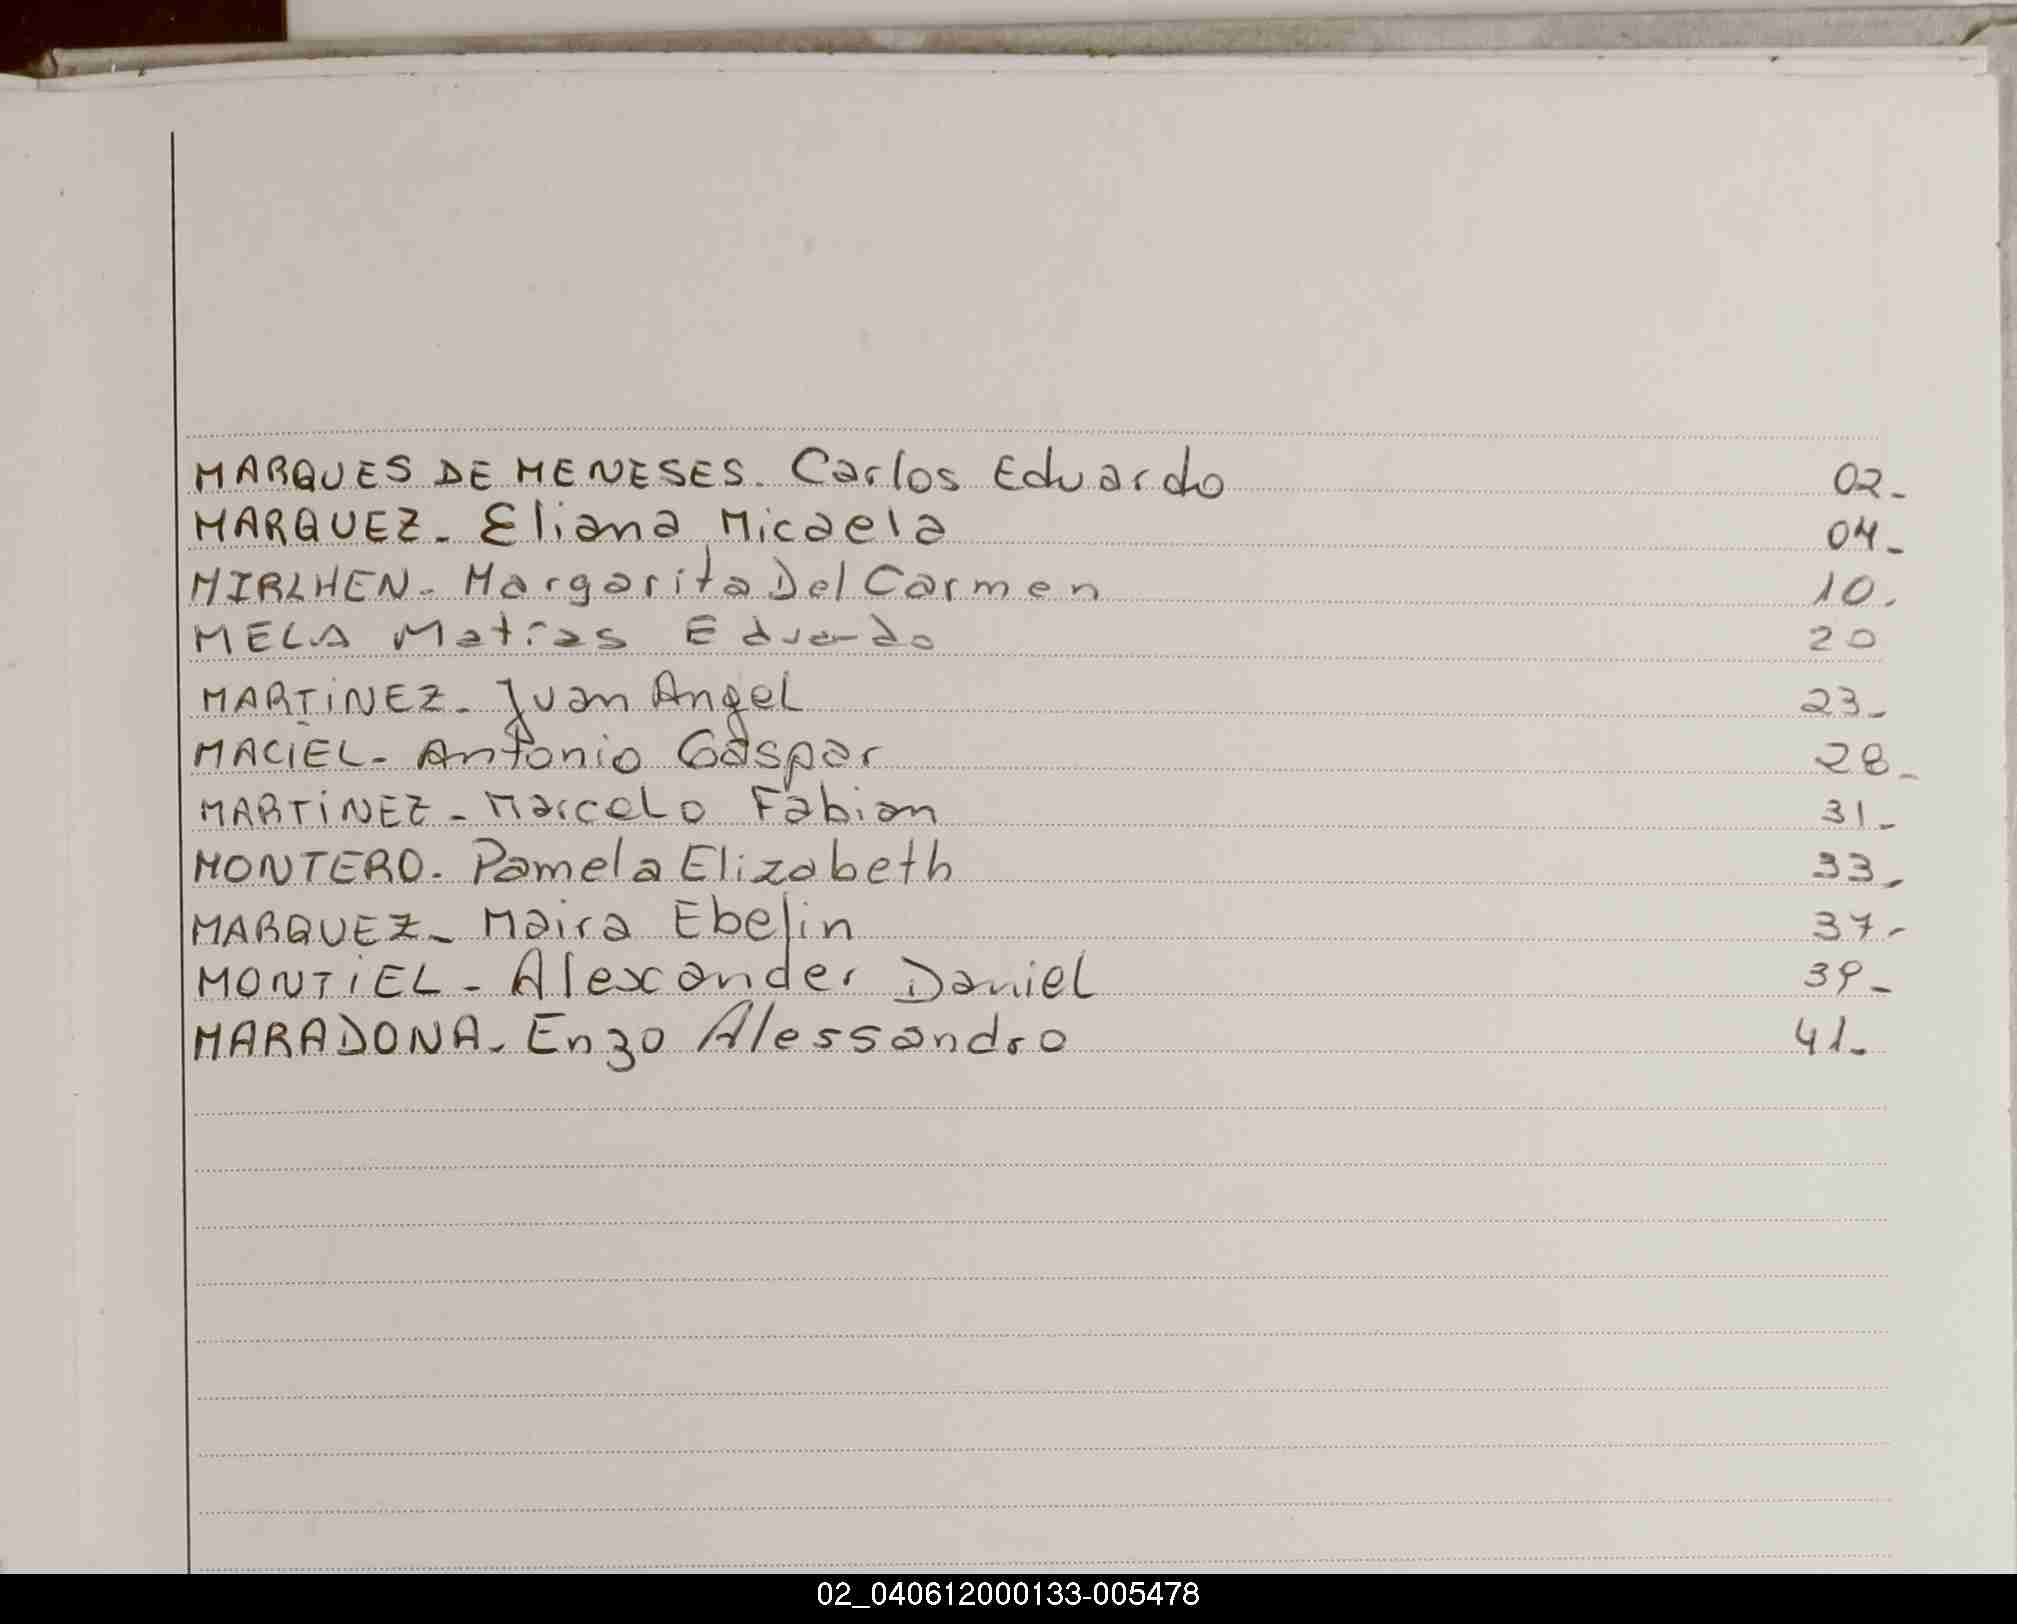 MARQUES DE MENESES. Carlos Eduardo 02-
MARQUEZ- Eliana Micaela 04-
MIRLHEN- Margarita Del Carmen 10.
MELA Matias Eduardo 20
MARTiNEZ- Juan Angel 23-
MACiEL- Antonio Gaspar 28-
MARTiNEZ- Marcelo Fabian 31-
MONTERO. Pamela Elizabeth 33-
MARQUEZ- Maira Ebelin 37-
MONTiEL- Alexander Daniel 39-
MARADONA- Enzo Alessandro 41-
02_040612000133-005478